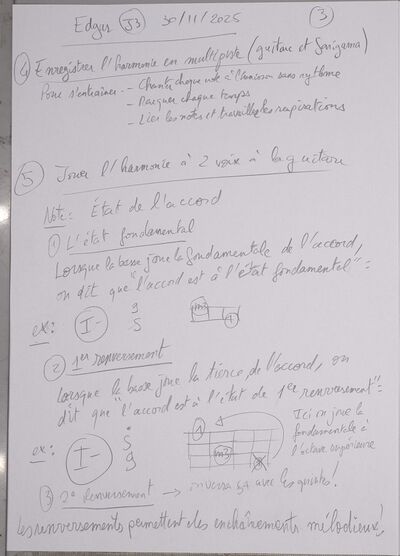 Edgar J3 30/11/2025 3
4 Enregistrer l'harmonie en multipiste (guitare et Sarigama)
Pour s'entraîner - Chanter chaque note à l'unisson sans rythme
- Marquer chaque temps
- Lier les notes et travailler les respirations
5 Jouer l'harmonie à 2 voix à la guitare
Note: État de l'accord
1 L'état fondamental
Lorsque la basse joue la fondamentale de l'accord,
on dit que "l'accord est à l'état fondamental"=
ex: I- 9
S
m3
1
2 1er renversement
Lorsque la basse joue la tierce de l'accord, on
dit que "l'accord est à l'état de 1er renversement"=
ex: I- S
9
1
m3
Ici on joue la
fondamentale à
l'octave supérieure
3 2e renversement → avec les quintes!
Les renversements permettent des enchaînements mélodieux!